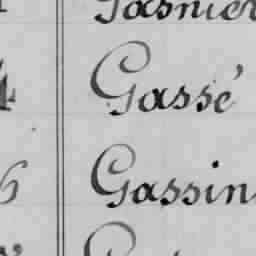 Gasnier
4 Gassé
6 Gassin